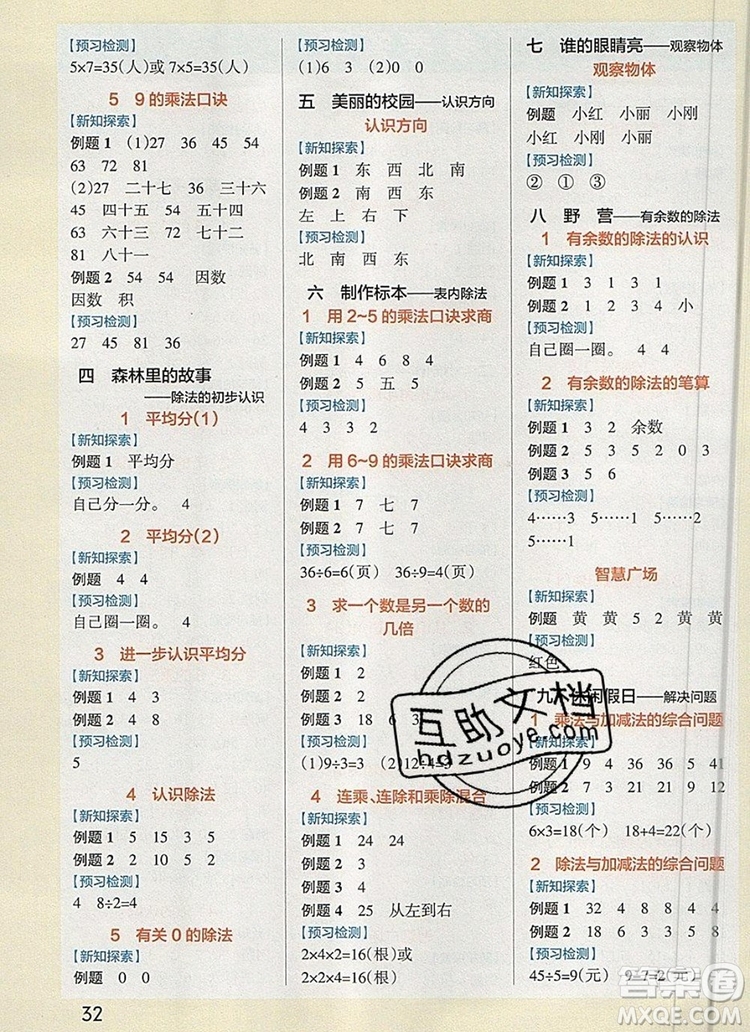 【预习检测】
5×7=35(人)或 7×5=35(人)
5 9的乘法口诀
【新知探索】
例题 1 (1)27 36 45 54
63 72 81
(2)27 二十七 三十六
45 四十五 54 五十四
63 六十三 72 七十二
81 八十一
例题 2 54 54 因数
因数 积
【预习检测】
27 45 81 36
四 森林里的故事
——除法的初步认识
1 平均分(1)
【新知探索】
例题 1 平均分
【预习检测】
自己分一分。 4
2 平均分(2)
【新知探索】
例题 4 4
【预习检测】
自己圈一圈。 4
3 进一步认识平均分
【新知探索】
例题 1 4 3
例题 2 2 4
【预习检测】
5
4 认识除法
【新知探索】
例题 1 15 3 5
例题 2 2 10 5 2
【预习检测】
4 8÷2=4
5 有关 0 的除法
【新知探索】
例题 0 0
32
【预习检测】
(1)6 3 (2)0 0
五 美丽的校园——认识方向
认识方向
【新知探索】
例题 1 东 西 北 南
例题 2 东 南 西 北
左 上 右 下
【预习检测】
北 南 西 东
六 制作标本——表内除法
1 用 2~5 的乘法口诀求商
【新知探索】
例题 1 4 6 8 4
例题 2 5 五 5
【预习检测】
4 3 3 2
2 用 6~9 的乘法口诀求商
【新知探索】
例题 1 7 七 7
例题 2 7 七 7
【预习检测】
36÷6=6(页) 36÷9=4(页)
3 求一个数是另一个数的
几倍
【新知探索】
例题 1 2
例题 2 2
例题 3 18 6 3
【预习检测】
(1)9÷3=3 (2)12÷4=3
4 连乘、连除和乘除混合
【新知探索】
例题 1 24 24
例题 2 3
例题 3 4
例题 4 25 从左到右
【预习检测】
2×4×2=16(根)或
2×2×4=16(根)
七 谁的眼睛亮——观察物体
观察物体
【新知探索】
例题 小红 小丽 小刚
小红 小刚 小丽
【预习检测】
② ① ③
八 野 营——有余数的除法
1 有余数的除法的认识
【新知探索】
例题 1 9 8 7
例题 2 1 2 3 4 小
【预习检测】
自己圈一圈。 4
2 有余数的除法的笔算
【新知探索】
例题 1 3 2 余数
例题 2 5 3 5 2 0 3
例题 3 5 6
【预习检测】
4……3 5……1 5……2
5……2
智慧广场
【新知探索】
例题 黄 黄 5 2 黄
【预习检测】
红色
九 休闲假日——解决问题
1 乘法与加减法的综合问题
【新知探索】
例题 1 9 4 36 36 5 41
例题 2 7 42 42 8 50
【预习检测】
6×3=18(个) 18+4=22(个)
2 除法与加减法的综合问题
【新知探索】
例题 1 32 4 8 8 8 0
例题 2 18 6 3 5 3 8
【预习检测】
45÷5=9(元) 9-7=2(元)
互助文档
hdzuoye.com
答案圈
MXQE.COM